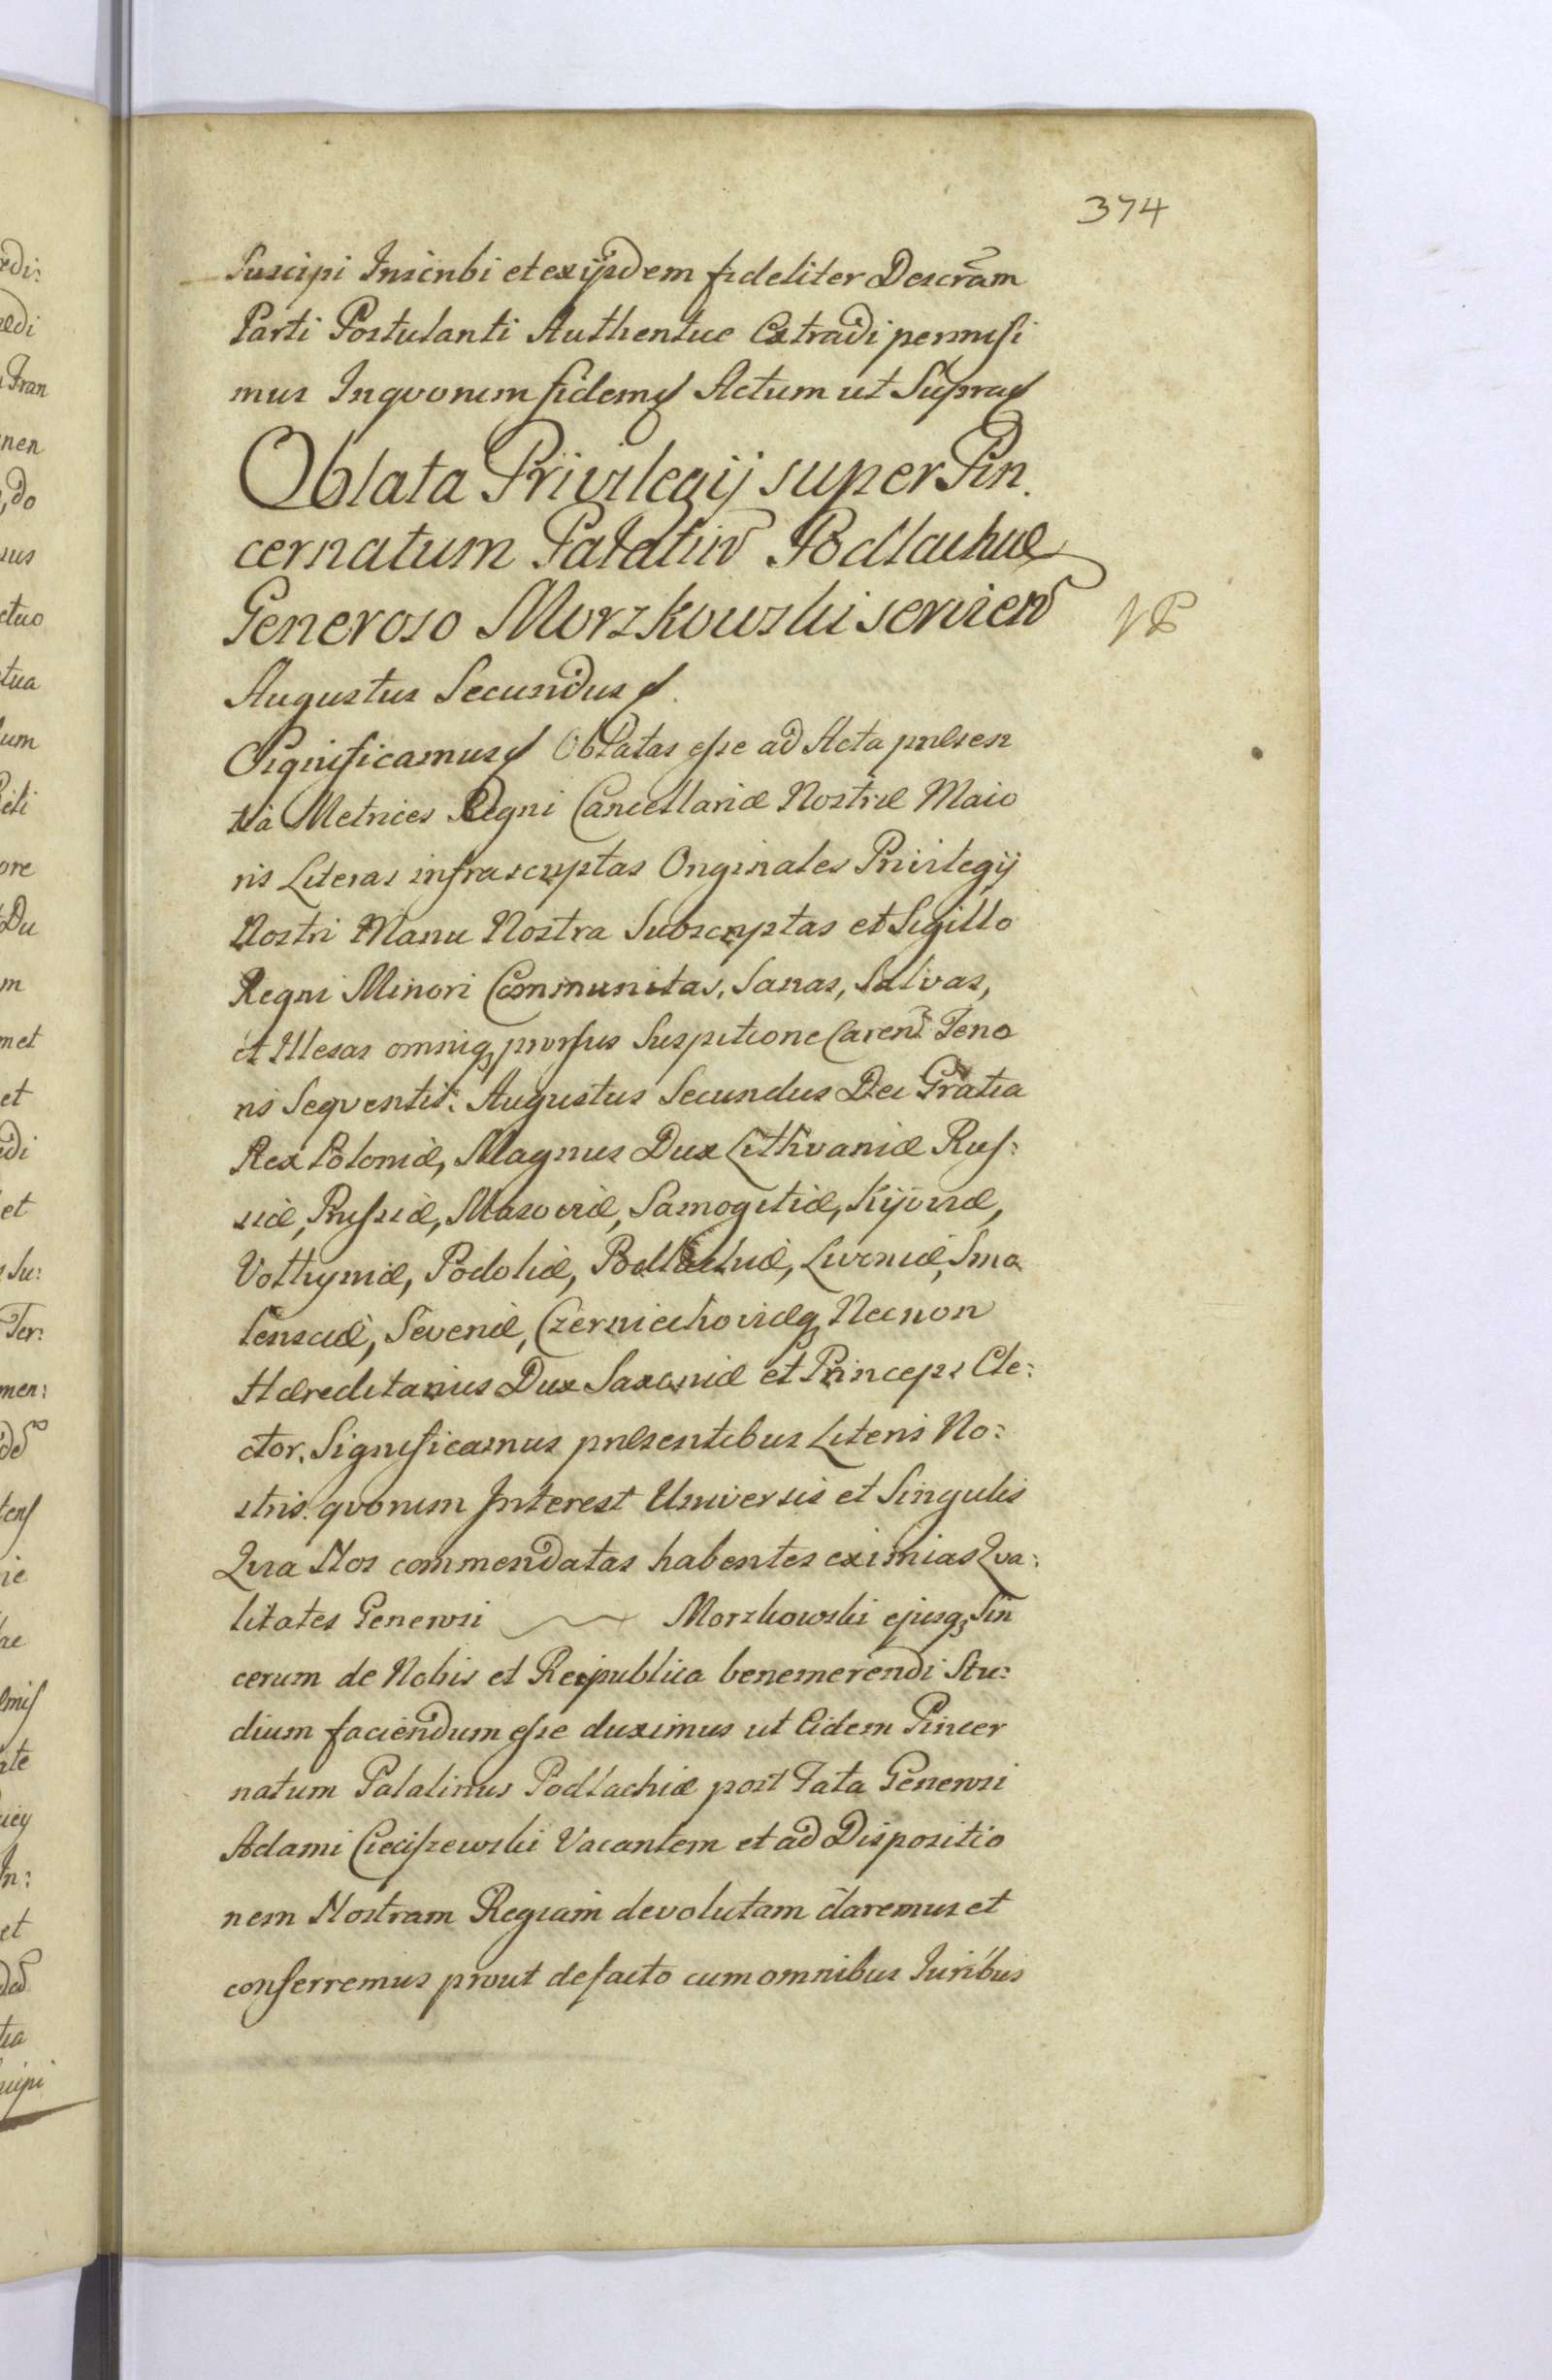 374
Suscipi Inscribi et ex ijsdem fideliter Descrãm
Parti Postulanti Authentice Extradi permisi
mus In qvorum fidem Actum ut Supra
Oblata Privilegij super Pin.
cernatum Palatin Podlachiæ
Generoso Morzkowski servien
Augustus Secundus
Significamus Oblatas esse ad Acta præsen
tia Metrices Regni Cancellariæ Nostræ Maio
ris Literas infrascriptas Originales Privilegij
Nostri Manu Nostra Subscriptas et Sigillo
Regni Minori Communitas, Sanas, Salvas,
et Illesas omniq, prorsus Suspitione Caren Teno
ris Seqventis: Augustus Secundus Dei Gratia
Rex Poloniæ, Magnus Dux Lithvaniæ Rus:
siæ, Prussiæ, Masoviæ, Samogitiæ, Kijoviæ,
Volhyniæ, Podoliæ, Podlachiæ, Livoniæ, Smo
lensciæ, Severiæ, Czerniechoviæq, Necnon
Hæreditarius Dux Saxoniæ et Princeps Ele:
ctor. Significamus præsentibus Literis No:
stris. qvorum Interest Universis et Singulis
Qvia Nos commendatas habentes eximias Qva:
litates Generosi Morzkowski ejusq, Sin
cerum de Nobis et Reipublica benemerendi Stu:
dium faciendum esse duximus ut Eidem Pincer
natum Palatinus Podlachiæ post Fata Generosi
Adami Cieciszewski Vacantem et ad Dispositio
nem Nostram Regiam devolutam daremus et
conferremus prout defacto cum omnibus Iuribus